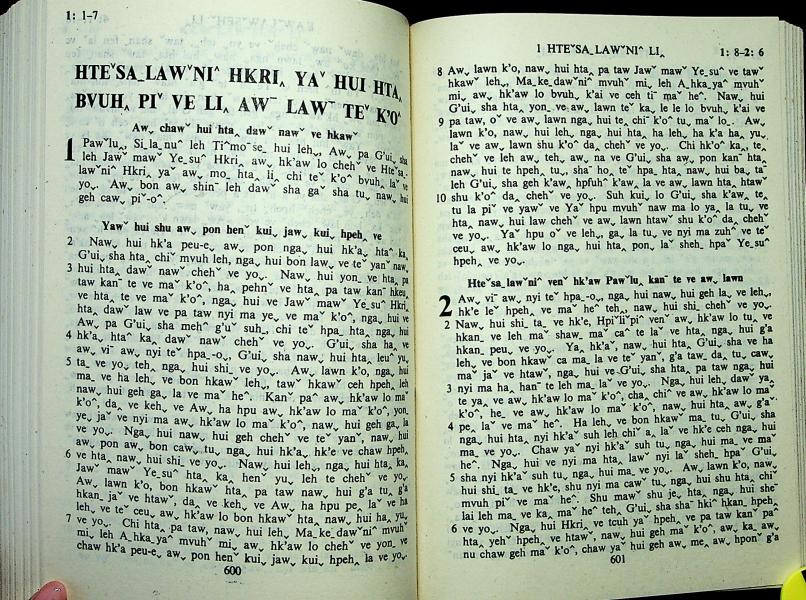 1: 1–7
HTEˇSA_LAWˇNIˆ HKRI‸ YAˇ HUI HTA‸
BVUH‸ PIˇ VE LI‸ AWˉ LAWˉ TEˇ K'Oˆ
Aw˯ chawˇ hui hta‸ dawˇ nawˇ ve hkawˇ
1 Pawˇlu‸, Si_la_nuˆ leh Tiˆmoˉse_ hui leh‸, Aw‸ pa G'ui‸ sha
leh Jawˇ mawˇ Ye_suˆ Hkri‸ aw‸ hk'aw lo chehˇ ve Hteˇsa_
lawˇniˆ Hkri‸ yaˇ aw‸ mo_ hta‸ li‸ chi teˇ k'oˆ bvuh‸ laˇ ve
yo˯. Aw˯ bon aw‸ shinˉ leh dawˇ sha gaˇ sha tu‸ naw‸ hui
geh caw‸ piˇ-oˆ.
Yawˇ hui shu aw‸ pon henˇ kui‸ jaw‸ kui‸ hpeh‸ ve
2 Naw‸ hui hk'a peu-e‸ aw‸ pon nga‸ hui hk'a‸ htaˆ ka‸
G'ui‸ sha hta‸ chi mvuh leh, nga‸ hui bon law‸ ve teˇ yanˇ naw‸
3 hui hta‸ dawˇ nawˇ chehˇ ve yo˯. Naw‸ hui yon_ ve hta‸ pa
taw kanˉ te ve maˇ k'oˆ, ha_ pehnˇ ve hta‸ pa taw kanˉ hkeu‸
ve hta‸ te ve maˇ k'oˆ, nga‸ hui ve Jawˇ mawˇ Ye_suˆ Hkri‸
hta‸ daw‸ law ve pa taw nyi ma ye‸ ve maˇ k'oˆ, nga‸ hui ve
Aw‸ pa G'ui‸ sha mehˆ g'uˇ suh_ chi teˇ hpa_ hta‸ nga‸ hui
4 hk'a‸ htaˆ ka‸ dawˇ nawˇ chehˇ ve yo˯. G'ui‸ sha ha‸ ve
aw‸ viˉ aw‸ nyi teˇ hpa_-o˯, G'ui‸ sha naw‸ hui hta‸ leuˆ yu‸
5 ta‸ ve yo˯ teh‸ nga‸ hui shi_ ve yo˯. Aw‸ lawn k'o, nga‸ hui
ma_ ve ha leh‸ ve bon hkawˇ leh˯, tawˇ hkawˇ ceh hpeh‸ leh
naw‸ hui geh ga‸ la ve ma heˆ. Kanˇ paˆ aw‸ hk'aw lo maˇ
k'oˆ, da‸ ve keh‸ ve Aw‸ ha hpu aw‸ hk'aw lo maˇ k'oˆ, yon_
ye‸ jaˇ ve nyi ma aw‸ hk'aw lo maˇ k'oˆ, naw‸ hui geh ga‸ la
ve yo˯. Nga‸ hui naw‸ hui geh chehˇ ve teˇ yanˇ, naw‸ hui
aw‸ pon aw‸ bon caw‸ tu‸ nga‸ hui hk'a‸ hk'e ve chaw hpeh‸
6 ve hta‸ naw‸ hui shi_ ve yo˯. Naw‸ hui leh‸, nga‸ hui hta‸ ka‸
Jawˇ mawˇ Ye_suˆ hta‸ ka‸ henˇ yu‸ leh te chehˇ ve yo˯.
Aw‸ lawn k'o‸ bon hkawˇ hta‸ pa taw naw‸ hui g'a tu‸ g'a
hkan_ jaˇ ve htawˇ, da‸ ve keh‸ ve Aw‸ ha hpu pe‸ laˇ ve ha
leh‸ ve teˇ ceu‸ aw‸ hk'aw lo bon hkawˇ hta‸ naw‸ hui ha‸ yu‸
7 ve yo˯. Chi hta‸ pa taw, naw‸ hui leh‸ Ma_ke_dawˇniˆ mvuhˇ
mi‸ leh A_hka_yaˆ mvuhˇ mi‸ aw‸ hk'aw lo chehˇ ve yon_ ve
chaw hk'a peu-e‸ aw‸ pon henˇ kui‸ jaw‸ kui‸ hpeh‸ la ve yo˯.
600
1 HTEˇSA_LAWˇNIˆ LI‸
1: 8–2: 6
8 Aw‸ lawn k'o, naw‸ hui hta‸ pa taw Jawˇ mawˇ Ye_suˆ ve tawˇ
hkawˇ leh‸ Ma_ke_dawˇniˆ mvuhˇ mi‸ leh A_hka_yaˆ mvuhˇ
mi‸ aw‸ hk'aw lo bvuh‸ k'ai ve ceh tiˉ maˇ heˆ. Naw‸ hui
G'ui‸ sha hta‸ yon_ ve aw‸ lawn teˇ ka‸ le le lo bvuh‸ k'ai ve
9 pa taw, oˇ ve aw‸ lawn nga‸ hui te‸ chiˇ k'oˆ tu‸ maˇ lo_. Aw‸
lawn k'o, naw‸ hui leh‸ nga‸ hui hta‸ ha leh‸ ha k'a ha_ yu‸
laˇ ve aw‸ lawn shu k'oˇ da‸ chehˇ ve yo˯. Chi hk'oˆ ka‸, te‸
chehˇ ve leh aw‸ teh‸ aw‸ na ve G'ui‸ sha aw‸ pon kanˉ hta‸
naw‸ hui te hpeh tu‸, shaˉ ho‸ teˇ hpa_ hta‸ naw‸ hui ba‸ taˉ
leh G'ui‸ sha geh k'aw‸ hpfuhˆ k'aw‸ la ve aw‸ lawn hta‸ htawˇ
10 shu k'oˇ da‸ chehˇ ve yo˯. Suh kui‸ lo G'ui‸ sha k'aw‸ te‸
tu la piˇ ve yawˇ ve Yaˇ hpu mvuhˇ naw ma lo ya‸ la tu‸ ve
hta‸ naw‸ hui law chehˇ ve aw‸ lawn htawˇ shu k'oˇ da‸ chehˇ
ve yo˯. Yaˇ hpu oˇ ve leh‸, ga‸ la tu‸ ve nyi ma zuhˆ ve teˇ
ceu‸ aw‸ hk'aw lo nga‸ hui hta‸ pon_ laˇ sheh_ hpaˇ Ye_suˆ
hpeh‸ ve yo˯.
Hteˇsa_lawˇniˆ venˇ hk'aw Pawˇlu‸ kanˉ te ve aw‸ lawn
2 Aw‸ viˉ aw‸ nyi teˇ hpa_-o˯, nga‸ hui naw‸ hui geh la ve leh˯,
hk'e leˇ hpeh‸ ve maˇ heˆ teh‸ naw‸ hui shi_ chehˇ ve yo˯.
2 Naw‸ hui shi_ ta_ ve hk'e, Hpiˇliˇpiˆ venˇ aw‸ hk'aw lo tu‸ ve
hkan_ ve leh maˇ shaw_ maˇ caˆ te laˇ ve hta‸ nga‸ hui g'a
hkan_ peu‸ ve yo˯. Ya‸ hk'aˇ, naw‸ hui hta‸ G'ui‸ sha ve ha
leh‸ ve bon hkawˇ ca ma_ la ve teˇ yanˇ, g'a taw_ da‸ tu‸ caw‸
maˇ jaˇ ve htawˇ, nga‸ hui ve G'ui‸ sha hta‸ pa taw nga‸ hui
3 nyi ma ha‸ hanˉ te leh ma_ laˇ ve yo˯. Nga‸ hui leh‸ dawˇ ya‸
te ya‸ ve aw‸ hk'aw lo maˇ k'oˆ, cha‸ chiˆ ve aw‸ hk'aw lo maˇ
k'oˆ, he‸ ve aw‸ hk'aw lo maˇ k'oˆ, naw‸ hui hta‸ aw‸ g'aˇ
4 pe‸ la ve maˇ heˆ. Ha leh‸ ve bon hkawˇ ma_ tu‸ G'ui‸ sha
nga‸ hui hta‸ nyi hk'aˇ suh leh chiˇ a‸ laˇ ve hk'e ceh nga‸ hui
ma_ ve yo˯. Chaw yaˇ nyi hk'aˇ suh tu‸ nga‸ hui ma_ ve maˇ
heˆ. Nga‸ hui ve nyi ma hta‸ lawˇ nyi laˇ sheh_ hpaˇ G'ui‸
5 sha nyi hk'aˇ suh tu‸ nga‸ hui ma_ ve yo˯. Aw‸ lawn k'o, naw‸
hui shi_ ta_ ve hk'e, shu nyi ma caw‸ tu‸ nga‸ hui shu hta‸ chiˆ
mvuh piˇ ve maˇ heˆ. Shu mawˇ shu je‸ hta‸ nga‸ hui sheˉ
lai leh ma_ ve ka‸ maˇ heˆ teh‸ G'ui‸ sha shaˉ hkiˆ hkan_ hpeh‸
6 ve yo˯. Nga‸ hui Hkri‸ ve tcuh yaˇ hpeh‸ ve pa taw kanˇ paˆ
hta‸ yehˇ hpeh‸ ve htawˇ, naw‸ hui geh maˇ k'oˆ, aw‸ ka_ aw‸
nu chaw geh maˇ k'oˆ, chaw yaˇ hui geh aw‸ me‸ aw‸ hponˇ g'a
601